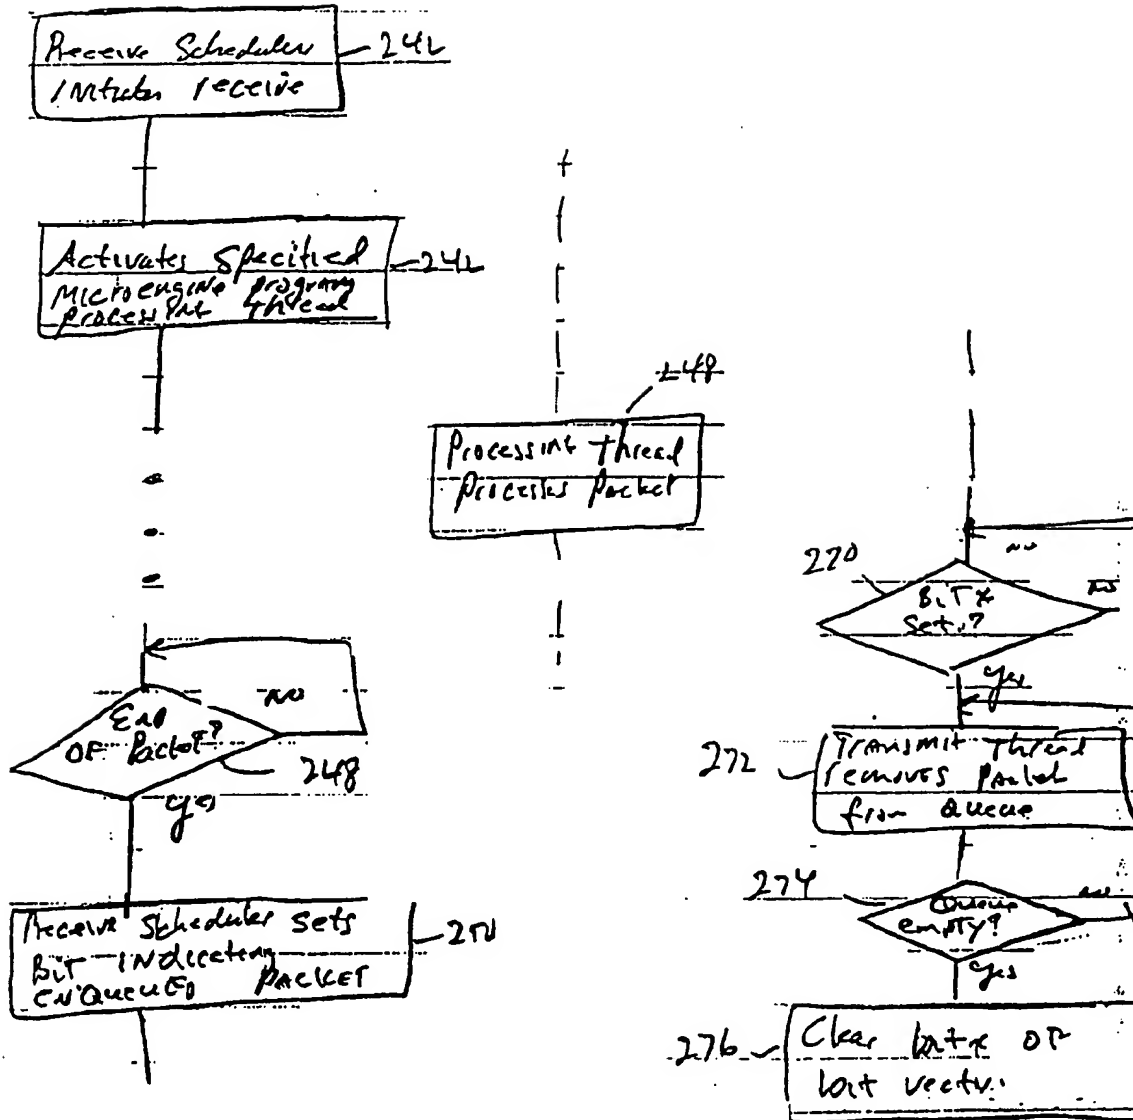 Receive Scheduler
initiates receive
242
Activates Specified
Microengine program
processing thread
242
248
Processing thread
processes packet
No
End
OF Packet?
248
yes
Receive Scheduler sets
Bit indicating
enqueued PACKET
250
No
270
No
BiT x
Set?
yes
272
Transmit thread
removes packet
from Queue
274
No
Queue
empty?
yes
276
Clear bit x OF
bit vector